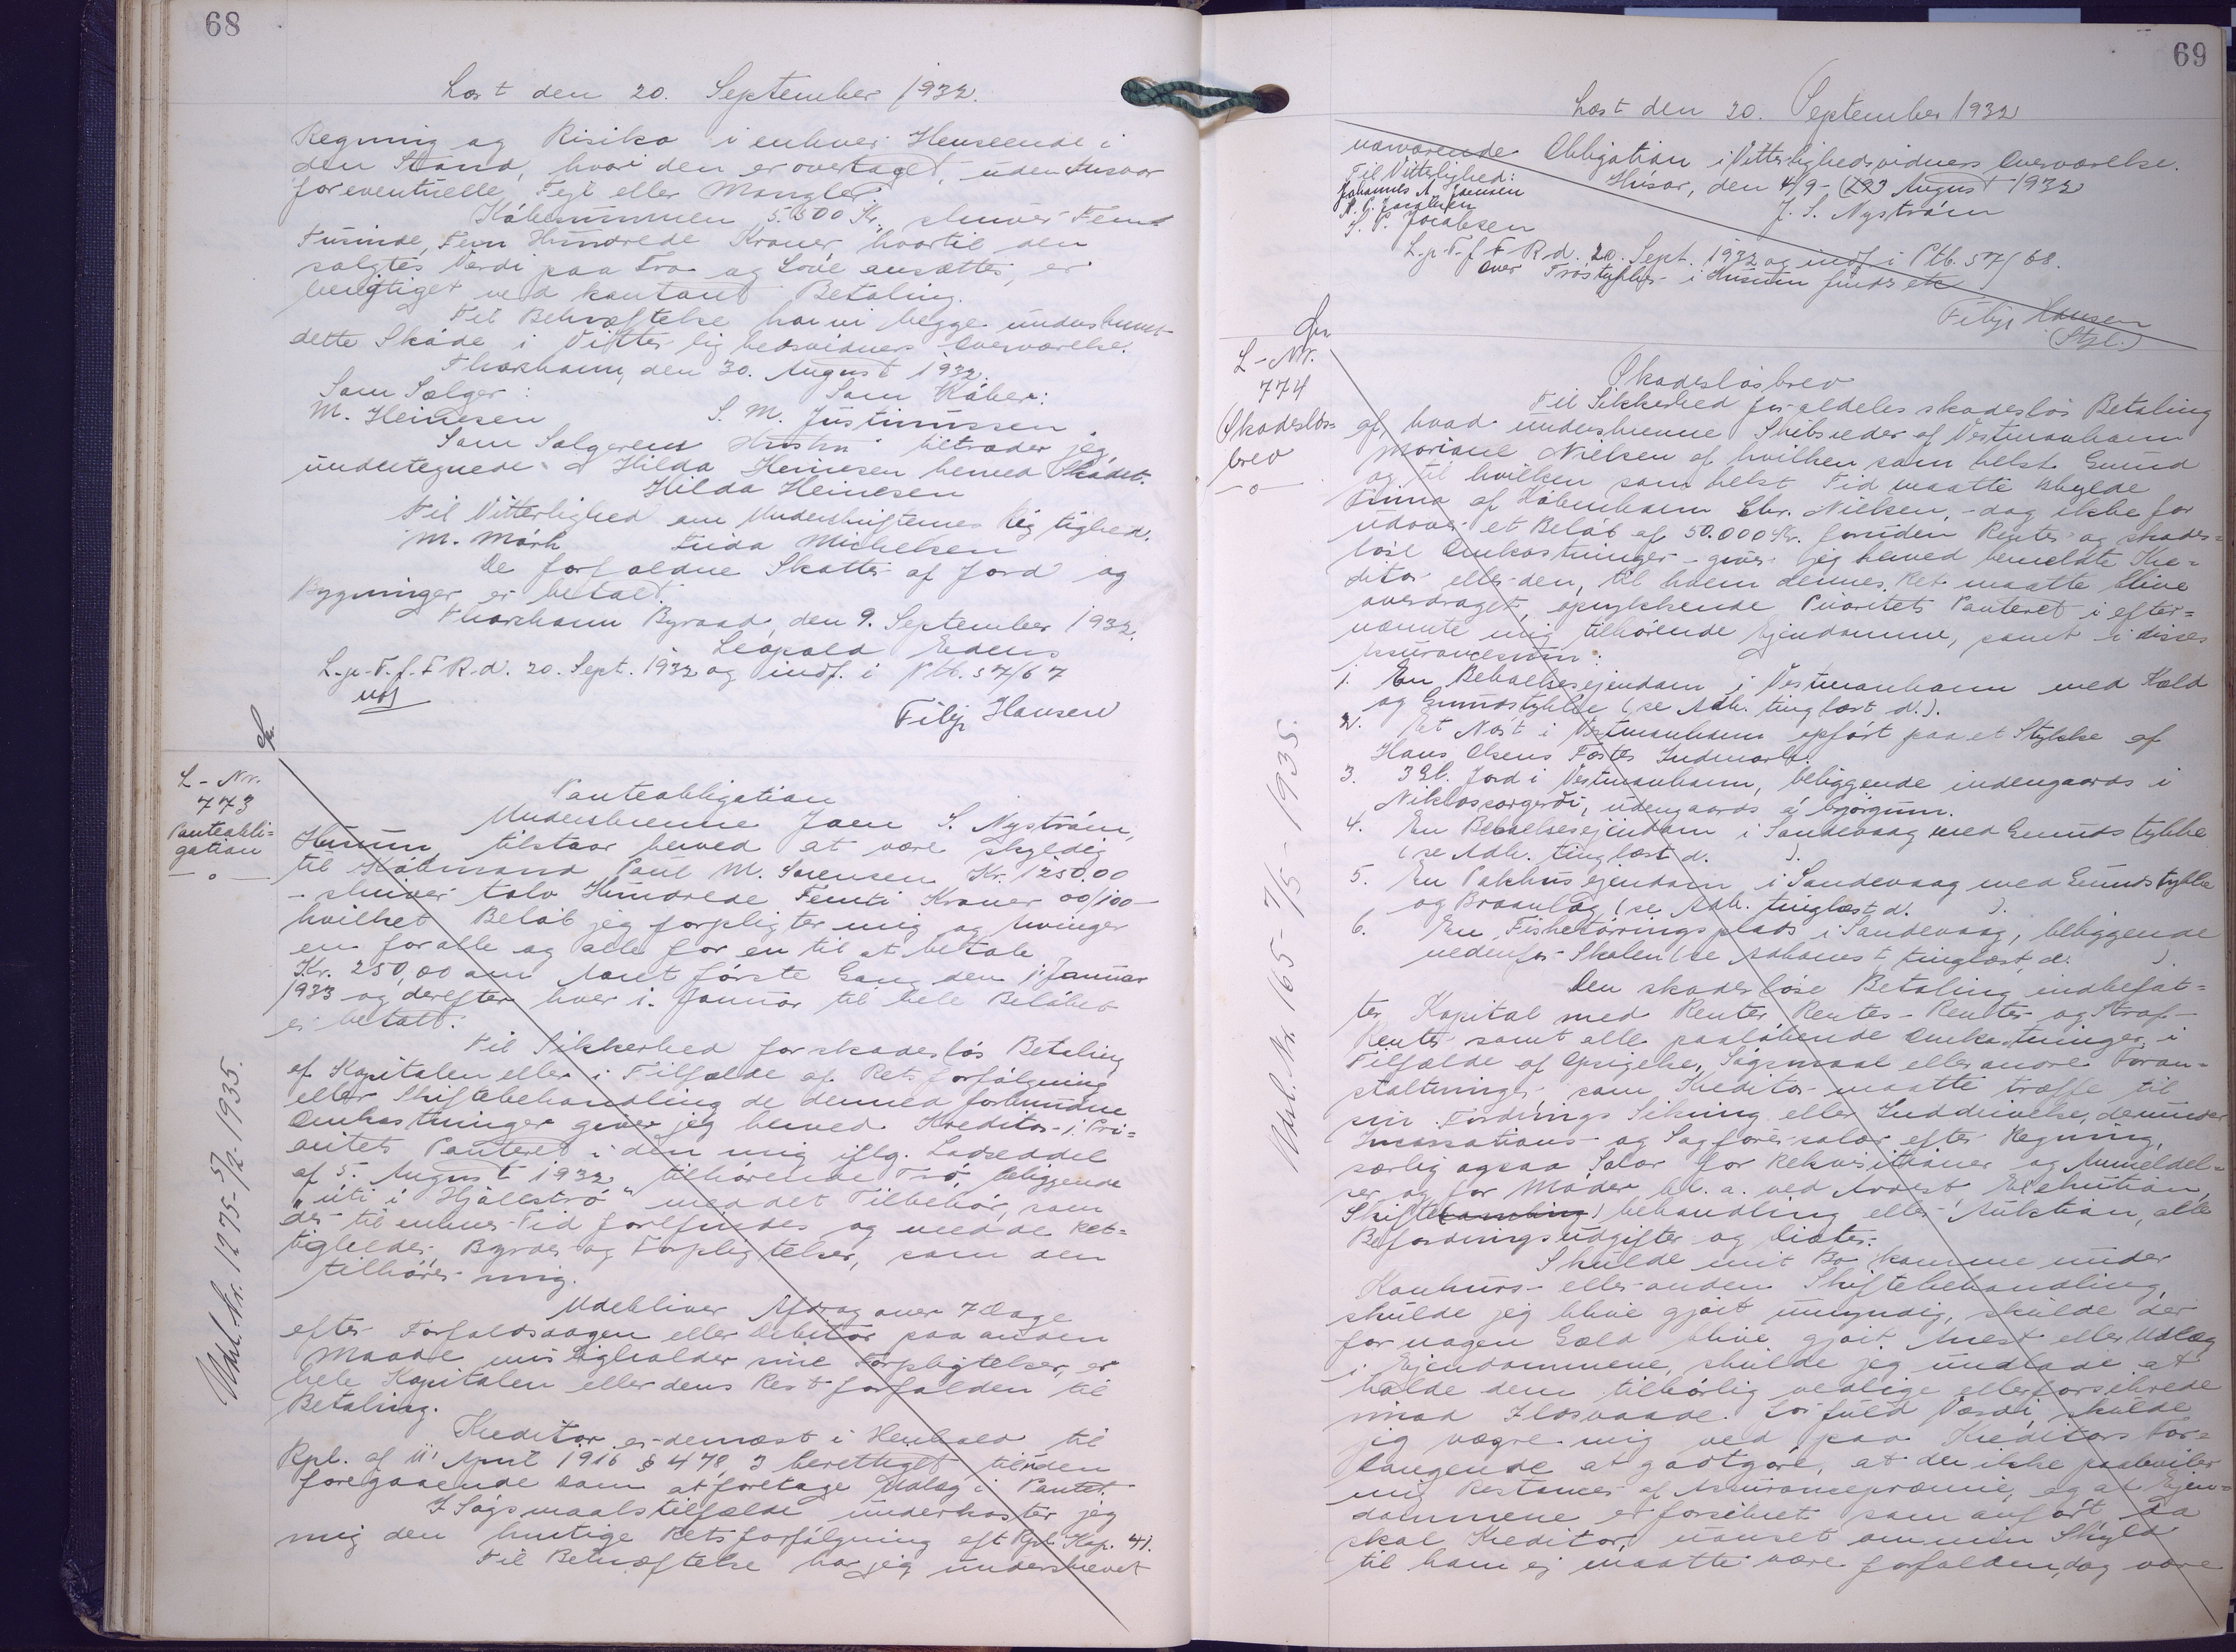 68
Læst den 20. September 1932.
Regning og Risiko i enhver Henseende i
den Stand, hvori den er overtaget, uden Ansvar
for eventuelle Fejl eller Mangler.
Købesummen 5.500 Kr., skriver Fem
Tusinde, Fem Hundrede Kroner, hvortil den
solgtes Værdi paa Tro og Love ansættes, er
berigtiget ved kontant Betaling.
Til Bekræftelse har vi begge underskrevet
dette Skøde i Vitterlighedsvidners Overværelse.
Thorshavn, den 30. August 1932.
Som Sælger: Som Køber:
M. Heinesen S. M. Justinussen
Som Sælgerens Hustru tiltræder jeg,
undertegnede Hilda Heinesen herved Skødet.
Hilda Heinesen
Til Vitterlighed om Underskrifternes Rigtighed.
M. Mørk Frida Michelsen
De forfaldne Skatter af Jord og
Bygninger er betalt.
Thorshavn Byraad, den 9. September 1932.
Leopold
L.p.T.f.F.R.d. 20. Sept. 1932 og indf. i Ptb. 57/67
Filip Hansen
L-Nr.
773
Panteobli=
gation
—o—
Udsl. Nr. 1275-5/2-1935.
Panteobligation
Underskrevne Joen S. Nystrøm,
Husum, tilstaar herved at være skyldig
til Købmand Poul M. Sørensen Kr. 1250.00
- skriver tolv Hundrede Femti Kroner 00/100 -
hvilket Beløb jeg forpligter mig og Arvinger
en for alle og alle for en til at betale
Kr. 250,00 om Aaret første Gang den 1. Januar
1933 og derefter hver 1. Januar til hele Beløbet
er betalt.
Til Sikkerhed for skadesløs Betaling
af Kapitalen eller i Tilfælde af Retsforfølgning
eller Skiftebehandling de dermed forbundne
Omkostninger giver jeg herved Kreditor 1. Pri=
oritets Panteret i den mig iflg. Lodseddel
af 5. August 1932 tilhørende Trø, beliggende
"úti í Hjallstrø" med det Tilbehør, som
der til enhver Tid forefindes og med de Ret=
tigheder, Byrder og Forpligtelser, som den
tilhører mig.
Udebliver Afdrag over 7 Dage
efter Forfaldsdagen eller Debitor paa anden
Maade misligholder sine Forpligtelser, er
hele Kapitalen eller dens Rest forfalden til
Betaling.
Kreditor er dernæst i Henhold til
Rpl. af 11 April 1916 § 478, 3 berettiget til uden
foregaaende Dom at foretage Udlæg i Pantet.
I Søgsmaalstilfælde underkaster jeg
mig den hurtige Retsforfølgning eft. Rpl. Kap. 41.
Til Bekræftelse har jeg underskrevet
69
Læst den 20. September 1932
nærværende Obligation i Vitterlighedsvidners Overværelse.
Til Vitterlighed: Húsar, den 4/9- (293 August 1932
Johannes A. Joensen J. S. Nystrøm
S. P. Jacobsen
L.p.T.f.F.R.d. 20. Sept. 1932 og indf. i Ptb. 57/68.
Over Trøstykker i Husum findes
Filip Hansen
(Stpl.)
L-Nr.
774
Skadesløs=
brev
—o—
Udsl. Nr. 165-7/5-1935.
Skadesløsbrev
Til Sikkerhed for aldeles skadesløs Betaling
af, hvad underskrevne Skibsreder af Vestmanhavn
Mariane Nielsen af hvilken som helst Grund
og til hvilken som helst Tid maatte skylde
Firma af København Chr. Nielsen, - dog ikke for
udover et Beløb af 50.000 Kr. foruden Renter og skades=
løse Omkostninger - giver jeg herved bemeldte Kre=
ditor eller den, til hvem dennes Ret maatte blive
overdraget, oprykkende Prioritets Panteret i efter=
nævnte mig tilhørende Ejendomme, samt i disses
Assurancesum:
1. En Beboelsesejendom i Vestmanhavn med Kæld
og Grundstykke (se Adk. tinglæst d.).
2. Et Nøst i Vestmanhavn opført paa et Stykke af
Hans Olsens Fæstes Indmark.
3. 3 Gl. Jord i Vestmanhavn, beliggende indengaards i
Niklosargerði, udengaards á bjørgum.
4. En Beboelsesejendom i Sandevaag med Grundstykke
(se Adk. tinglæst d. ).
5. En Pakhusejendom i Sandevaag med Grundstykke
og Braanlag (se Adk. tinglæst d. ).
6. En Fisketørringsplads i Sandevaag, beliggende
nedenfor Skolen (se Adkomst tinglæst d. ).
Den skadesløse Betaling indbefat=
ter Kapital med Renter, Rentes-Renter og Straf-
Renter samt alle paaløbende Omkostninger i
Tilfælde af Opsigelse, Søgsmaal eller andre Foran=
staltninger, som Kreditor maatte træffe til
sin Fordrings Sikring eller Inddrivelse, derunder
Incassations- og Sagførersalær efter Regning,
særlig ogsaa Salær for Rekvisitioner og Anmeldel=
ser og for Møder bl. a. ved Arrest, Exekution,
Skifte(samling) behandling eller Auktion, alle
Befordringsudgifter og Diæter.
Skulde mit Bo komme under
Konkurs- eller anden Skiftebehandling,
skulde jeg blive gjort umyndig, skulde der
for nogen Gæld blive gjort Arrest eller Udlæg
i Ejendommene, skulde jeg undlade at
holde dem tilbørlig vedlige eller forsikrede
imod Ildsvaade for fuld Værdi, skulde
jeg vægre mig ved paa Kreditors For=
langende at godtgøre, at der ikke paahviler
mig Restancer af Assurancepræmie, og at Ejen=
dommene er forsikret som anført, da
skal Kreditor, uanset om min Skyld
til ham ej maatte være forfalden, dog være